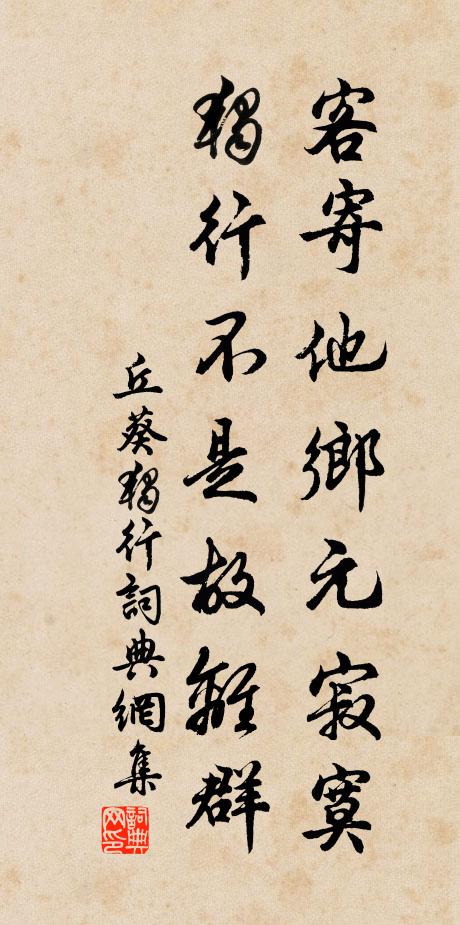 客寄他鄉元寂寞
獨行不是故離群
丘葵獨行詞典網集
詞典网印